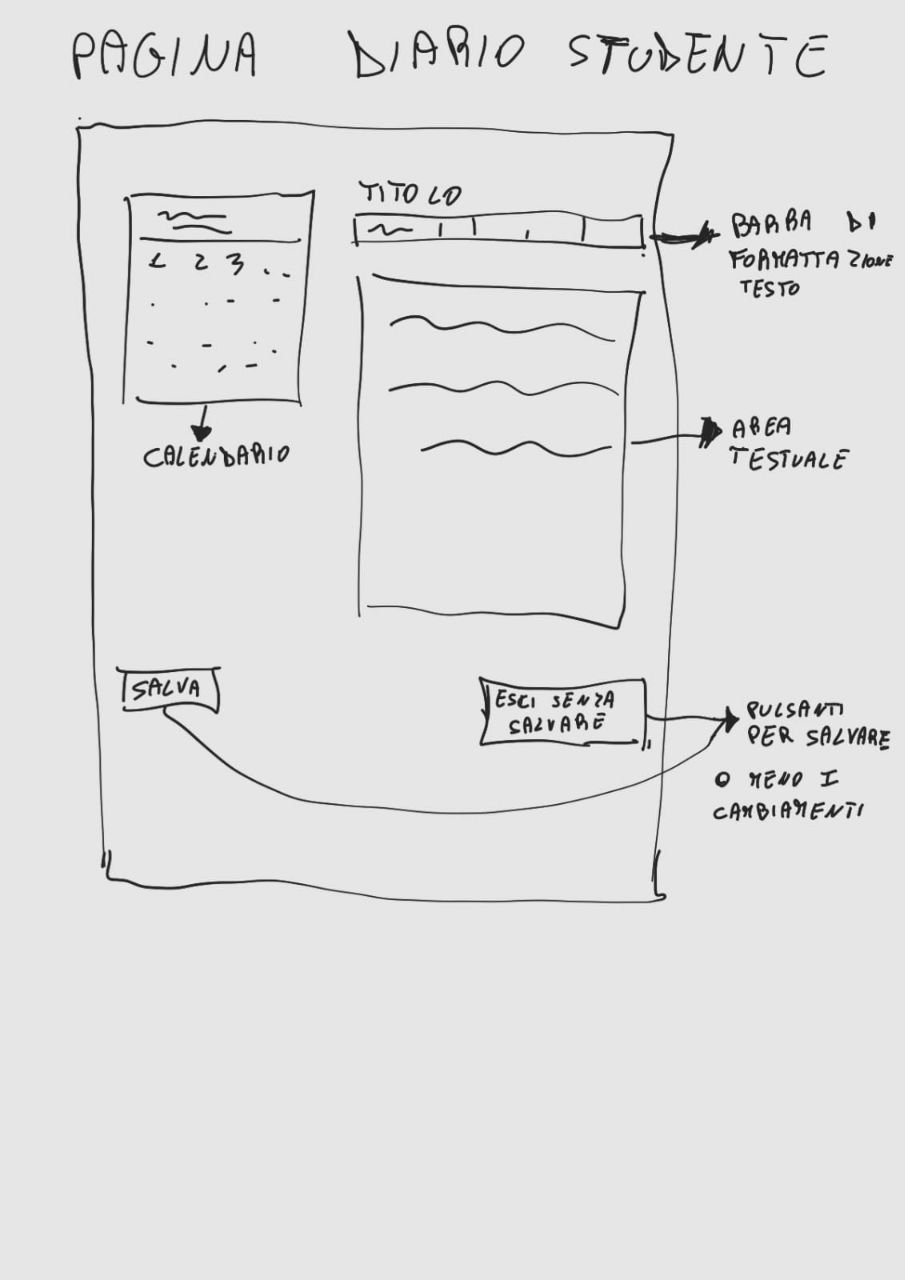 PAGINA DIARIO STUDENTE
TITOLO
1 2 3 . . .
BARRA DI
FORMATTAZIONE
TESTO
CALENDARIO
AREA
TESTUALE
SALVA
ESCI SENZA
SALVARE
PULSANTI
PER SALVARE
O MENO I
CAMBIAMENTI